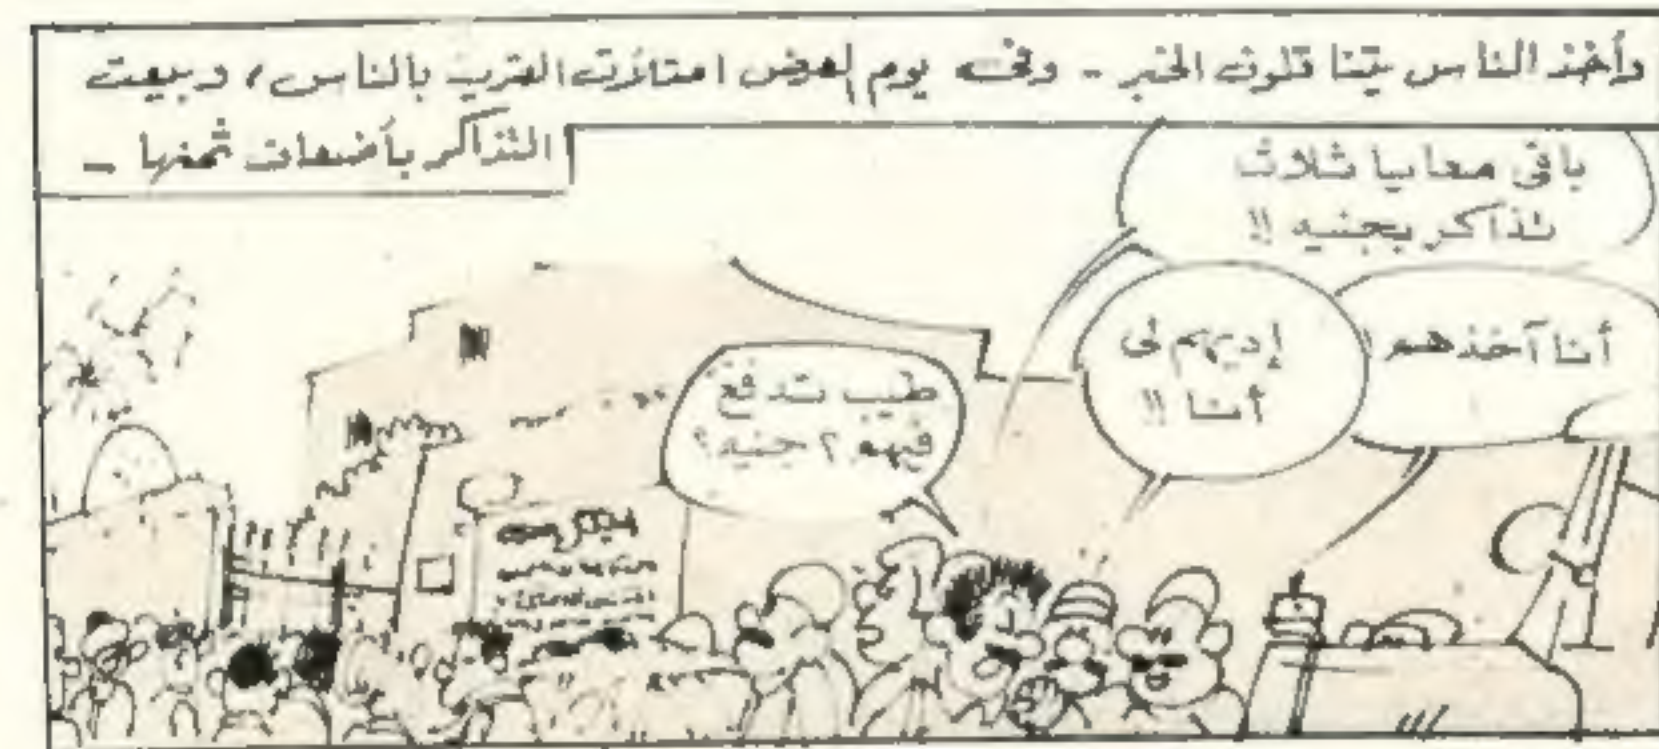 وأخذ الناس يتناقلون الخبر - وفى يوم العرض امتلأت القرية بالناس ، وبيعت
التذاكر بأضعاف ثمنها -
باقى معايا ثلاث
تذاكر بجنيه !!
أنا آخذهم !
إديهم لى
أنا !!
طيب تدفع
فيهم ٢ جنيه ؟